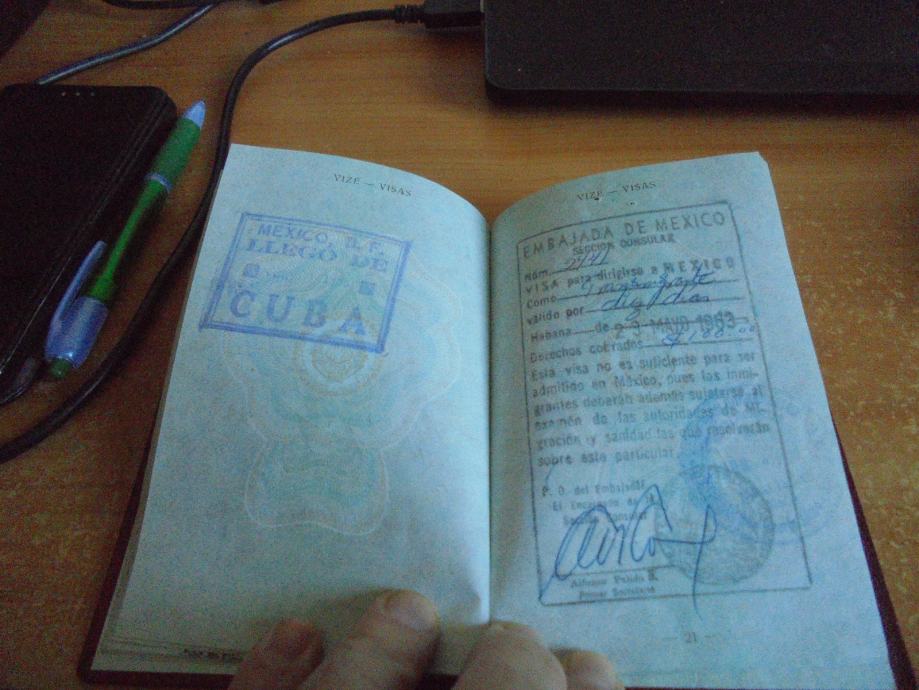 VIZE — VISAS
MEXICO, D. F.
LLEGO DE
CUBA
VIZE — VISAS
EMBAJADA DE MEXICO
SECCION CONSULAR
Núm. 2441
VISA para dirigirse a MEXICO
Como
válido por diez días
Habana de 29 MAYO
Derechos cobrados
Esta visa no es suficiente para ser
admitido en México, pues los inmi-
grantes deberán además sujetarse al
examén de las autoridades de Mi-
gración y sanidad las que resolverán
sobre este particular.
P. O. del Embajador
El Encargado de la
Sección Consular
Primer Secretario
21